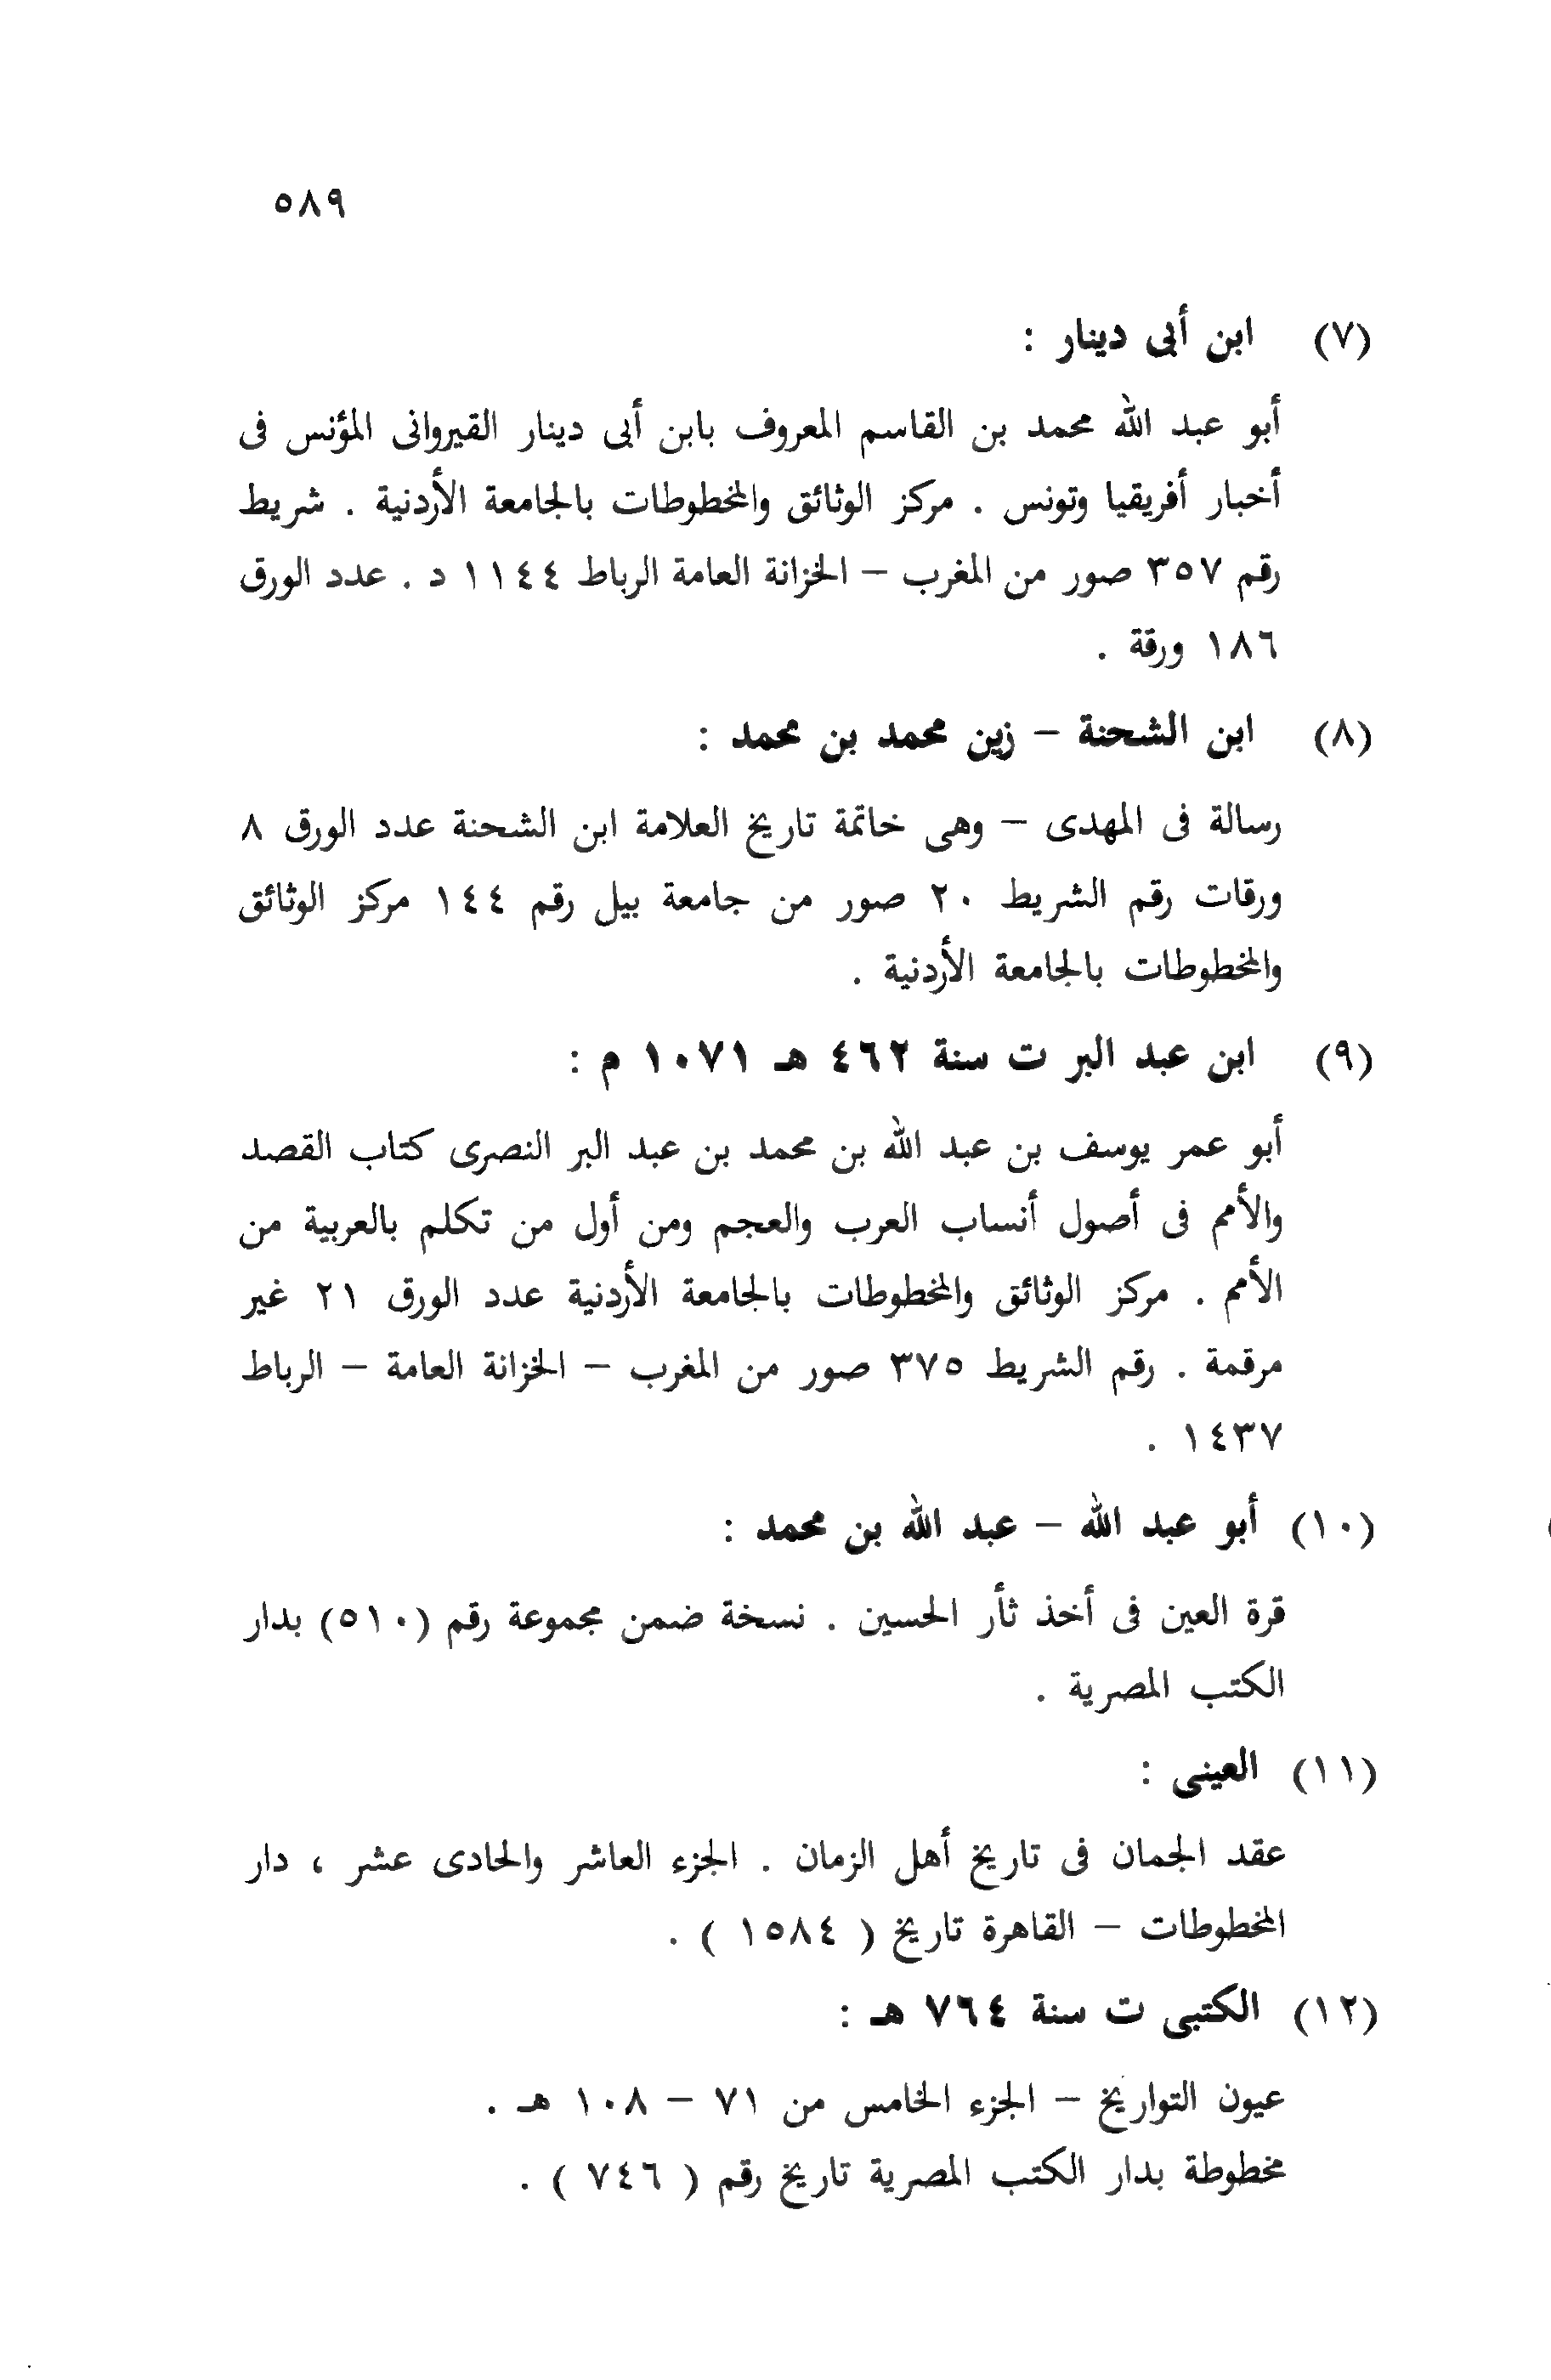 ٥٨٩
(٧) ابن أبى دينار :
أبو عبد الله محمد بن القاسم المعروف بابن أبى دينار القيروانى المؤنس فى
أخبار أفريقيا وتونس . مركز الوثائق والمخطوطات بالجامعة الأردنية . شريط
رقم ٣٥٧ صور من المغرب – الخزانة العامة الرباط ١١٤٤ د . عدد الورق
١٨٦ ورقة .
(٨) ابن الشحنة – زين محمد بن محمد :
رسالة فى المهدى – وهى خاتمة تاريخ العلامة ابن الشحنة عدد الورق ٨
ورقات رقم الشريط ٢٠ صور من جامعة ييل رقم ١٤٤ مركز الوثائق
والمخطوطات بالجامعة الأردنية .
(٩) ابن عبد البر ت سنة ٤٦٢ هـ ١٠٧١ م :
أبو عمر يوسف بن عبد الله بن محمد بن عبد البر النصرى كتاب القصد
والأمم فى أصول أنساب العرب والعجم ومن أول من تكلم بالعربية من
الأمم . مركز الوثائق والمخطوطات بالجامعة الأردنية عدد الورق ٢١ غير
مرقمة . رقم الشريط ٣٧٥ صور من المغرب – الخزانة العامة – الرباط
١٤٣٧ .
(١٠) أبو عبد الله – عبد الله بن محمد :
قرة العين فى أخذ ثأر الحسين . نسخة ضمن مجموعة رقم (٥١٠) بدار
الكتب المصرية .
(١١) العينى :
عقد الجمان فى تاريخ أهل الزمان . الجزء العاشر والحادى عشر ، دار
المخطوطات – القاهرة تاريخ ( ١٥٨٤ ) .
(١٢) الكتبى ت سنة ٧٦٤ هـ :
عيون التواريخ – الجزء الخامس من ٧١ – ١٠٨ هـ .
مخطوطة بدار الكتب المصرية تاريخ رقم ( ٧٤٦ ) .